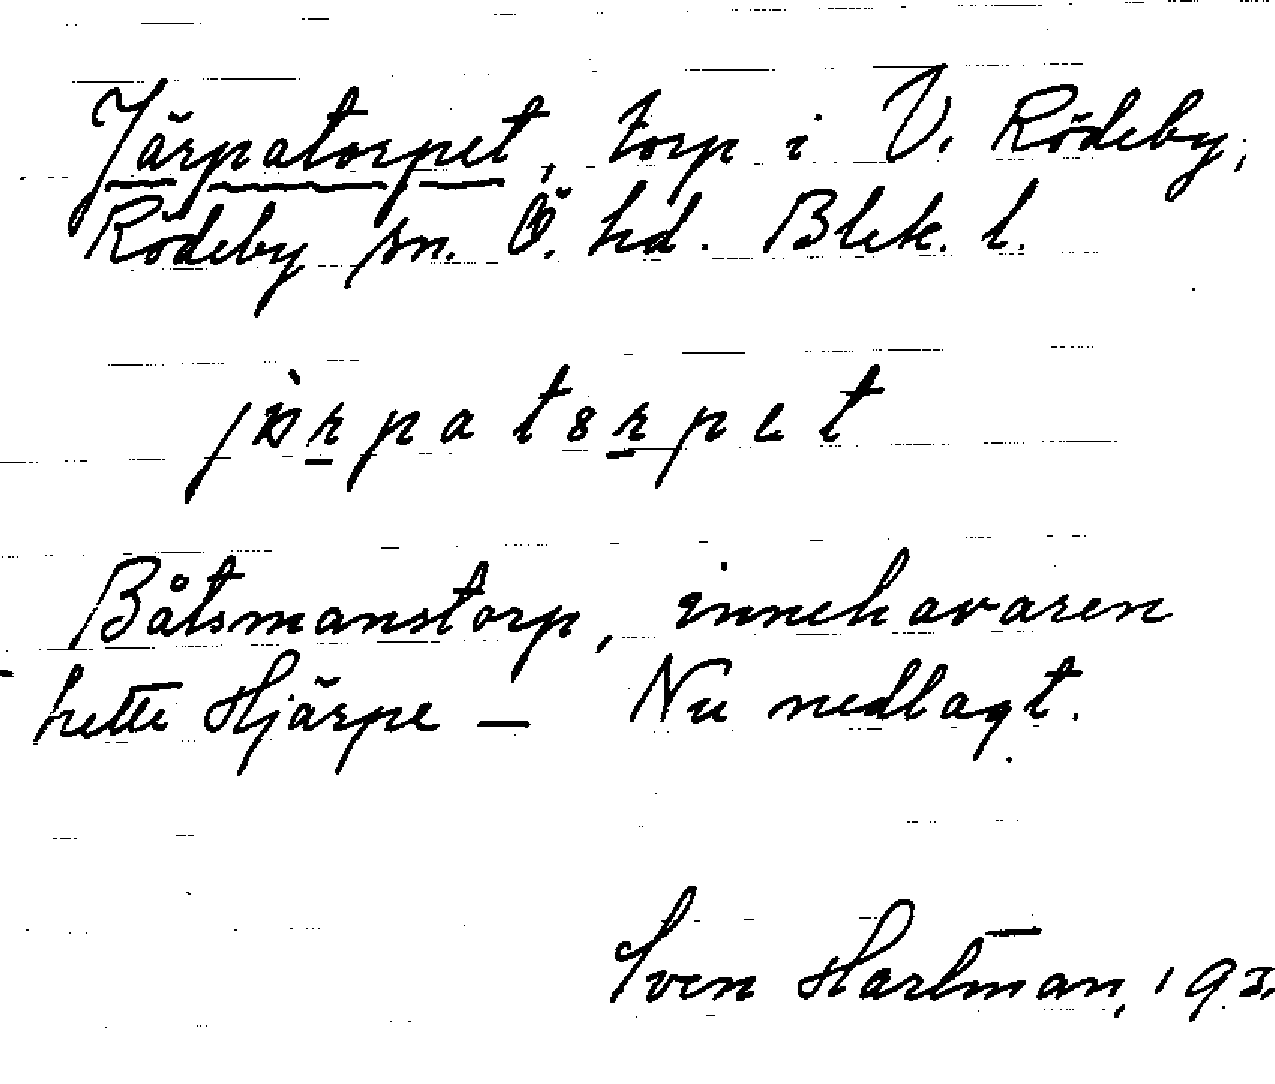 Järpatorpet, torp i V. Rödeby,
Rödeby sn. Ö. hd. Blek. l.
Båtsmanstorp, innehavaren
hette Hjärpe — Nu nedlagt.
Sven Hartman,